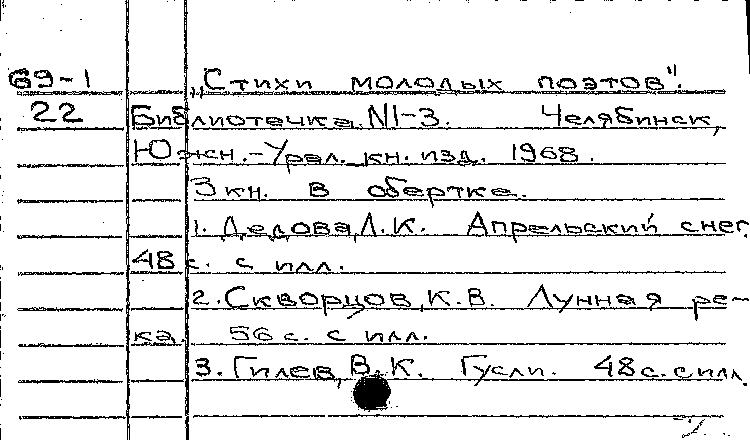 69-1 „Стихи молодых поэтов".
22 Библиотечка. N1-3. Челябинск,
Южн.-Урал. кн. изд. 1968.
3 кн. в обертке.
1. Дедова, Л.К. Апрельский снег.
48 с. с илл.
2. Скворцов, К.В. Лунная ре-
ка. 56 с. с илл.
3. Гилев, В.К. Гусли. 48 с. с илл.